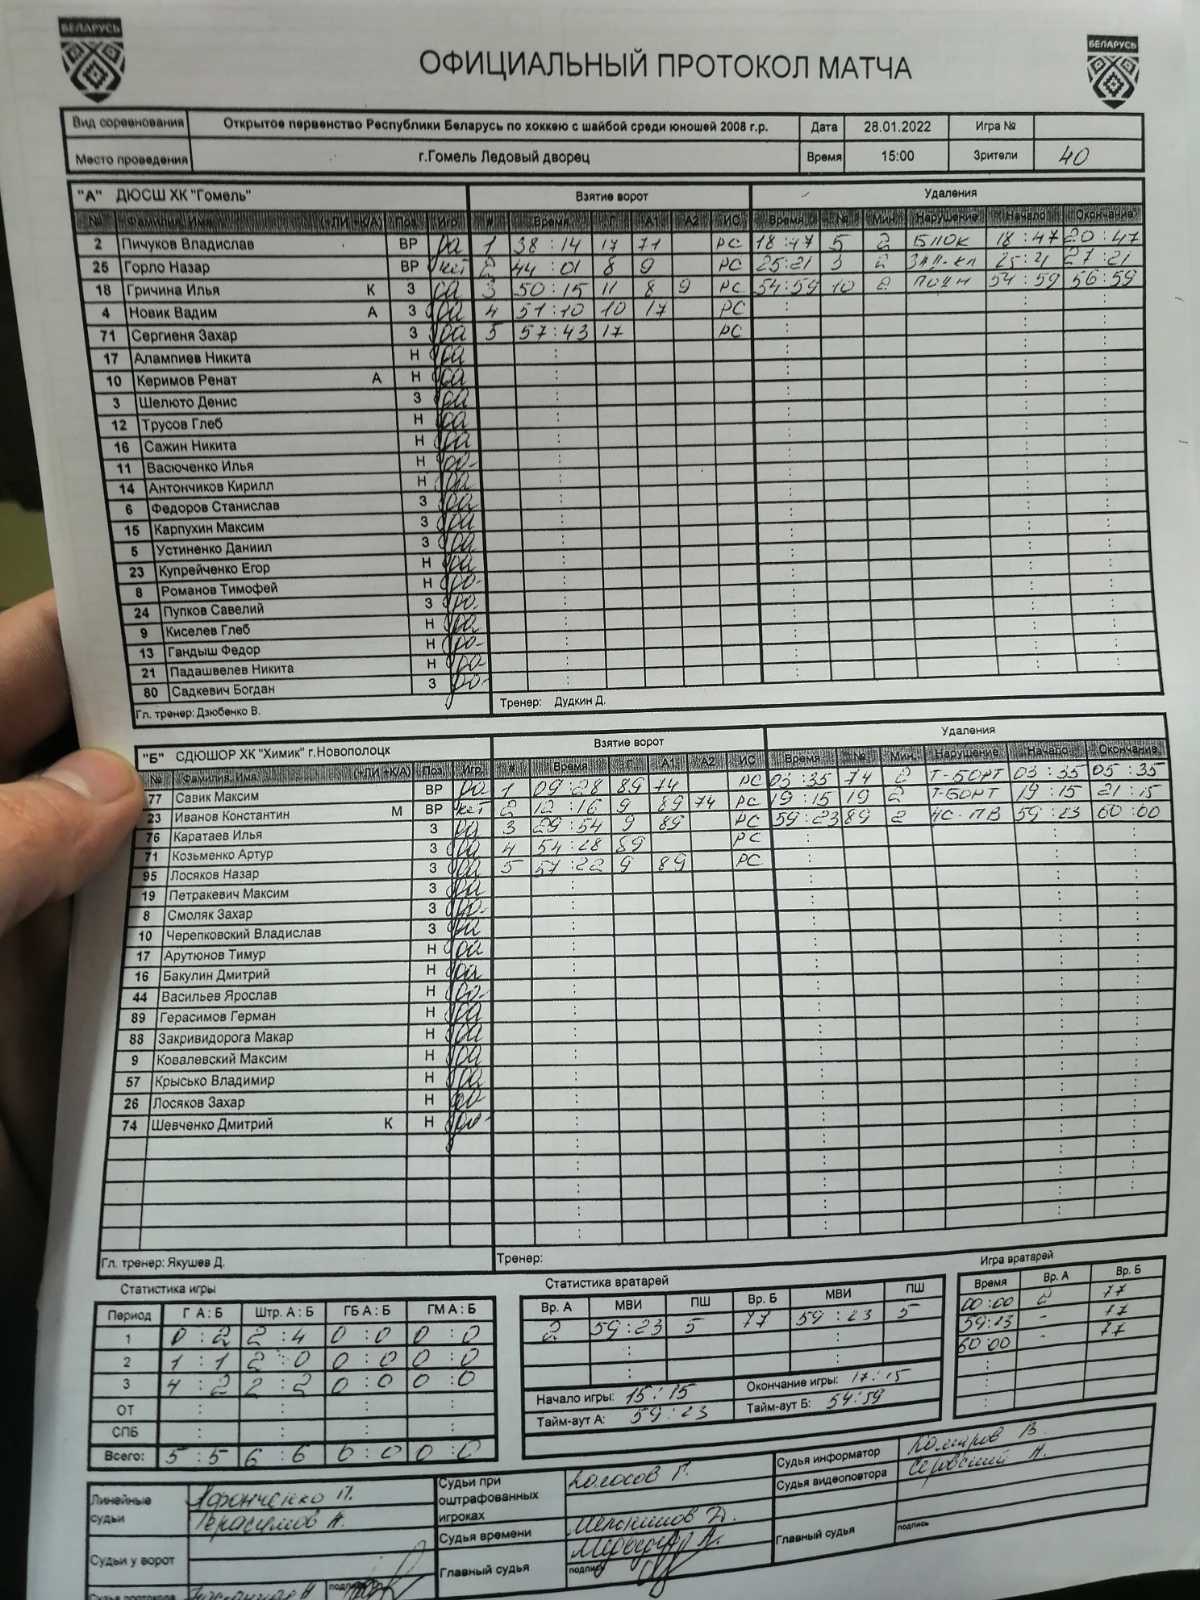 БЕЛАРУСЬ
БЕЛАРУСЬ
ОФИЦИАЛЬНЫЙ ПРОТОКОЛ МАТЧА
Вид соревнования Открытое первенство Республики Беларусь по хоккею с шайбой среди юношей 2008 г.р. Дата 28.01.2022 Игра №
Место проведения г.Гомель Ледовый дворец Время 15:00 Зрители 40
"А" ДЮСШ ХК "Гомель" Взятие ворот Удаления
№ Фамилия, Имя (+ЛИ +К/А) Поз. Игр. # Время Г А1 А2 ИС Время № Мин. Нарушение Начало Окончание
2 Пичуков Владислав ВР да 1 38:14 17 71 РС 18:47 5 2 БЛОК 18:47 20:47
25 Горло Назар ВР 2 44:01 8 9 РС 25:21 3 2 ЗАД-КЛ 25:21 27:21
18 Гричина Илья К З да 3 50:15 11 8 9 РС 54:59 10 2 ПОДН 54:59 56:59
4 Новик Вадим А З да 4 51:10 10 17 РС
71 Сергиеня Захар З да 5 57:43 17 РС
17 Алампиев Никита Н да
10 Керимов Ренат А Н да
3 Шелюто Денис З да
12 Трусов Глеб Н да
16 Сажин Никита Н да
11 Васюченко Илья Н да
14 Антончиков Кирилл Н да
6 Федоров Станислав З да
15 Карпухин Максим З да
5 Устиненко Даниил З да
23 Купрейченко Егор Н да
8 Романов Тимофей Н да
24 Пупков Савелий З да
9 Киселев Глеб Н да
13 Гандыш Федор Н да
21 Падашвелев Никита Н да
80 Садкевич Богдан З да
Гл. тренер: Дзюбенко В. Тренер: Дудкин Д.
"Б" СДЮШОР ХК "Химик" г.Новополоцк Взятие ворот Удаления
№ Фамилия, Имя (+ЛИ +К/А) Поз. Игр. # Время Г А1 А2 ИС Время № Мин. Нарушение Начало Окончание
77 Савик Максим ВР да 1 09:28 89 74 РС 03:35 74 2 Т-БОРТ 03:35 05:35
23 Иванов Константин М ВР 2 12:16 9 89 74 РС 19:15 19 2 Т-БОРТ 19:15 21:15
76 Каратаев Илья З да 3 29:54 9 89 РС 59:23 89 2 ЧС-ПВ 59:23 60:00
71 Козьменко Артур З да 4 54:28 89 РС
95 Лосяков Назар З да 5 57:22 9 89 РС
19 Петракевич Максим З да
8 Смоляк Захар З да
10 Черепковский Владислав З да
17 Арутюнов Тимур Н да
16 Бакулин Дмитрий Н да
44 Васильев Ярослав Н да
89 Герасимов Герман Н да
88 Закривидорога Макар Н да
9 Ковалевский Максим Н да
57 Крысько Владимир Н да
26 Лосяков Захар Н да
74 Шевченко Дмитрий К Н да
Гл. тренер: Якушев Д. Тренер:
Статистика игры Статистика вратарей Игра вратарей
Период Г А : Б Штр. А : Б ГБ А : Б ГМ А : Б Вр. А МВИ ПШ Вр. Б МВИ ПШ Время Вр. А Вр. Б
1 0:2 2:4 0:0 0:0 2 59:23 5 77 59:23 5 00:00 2 77
2 1:1 2:0 0:0 0:0 59:23 - 77
3 4:2 2:2 0:0 0:0 60:00 - 77
ОТ Начало игры: 15:15 Окончание игры: 17:15
СПБ Тайм-аут А: 59:23 Тайм-аут Б: 54:59
Всего: 5:5 6:6 0:0 0:0
Линейные судьи Афонченко П. Герасимов А.
Судьи при оштрафованных игроках Колосов Г.
Судья информатор Комаров В.
Судья видеоповтора Серовский А.
Судьи у ворот
Судья времени
Главный судья подпись
Главный судья подпись
Судья протокола подпись